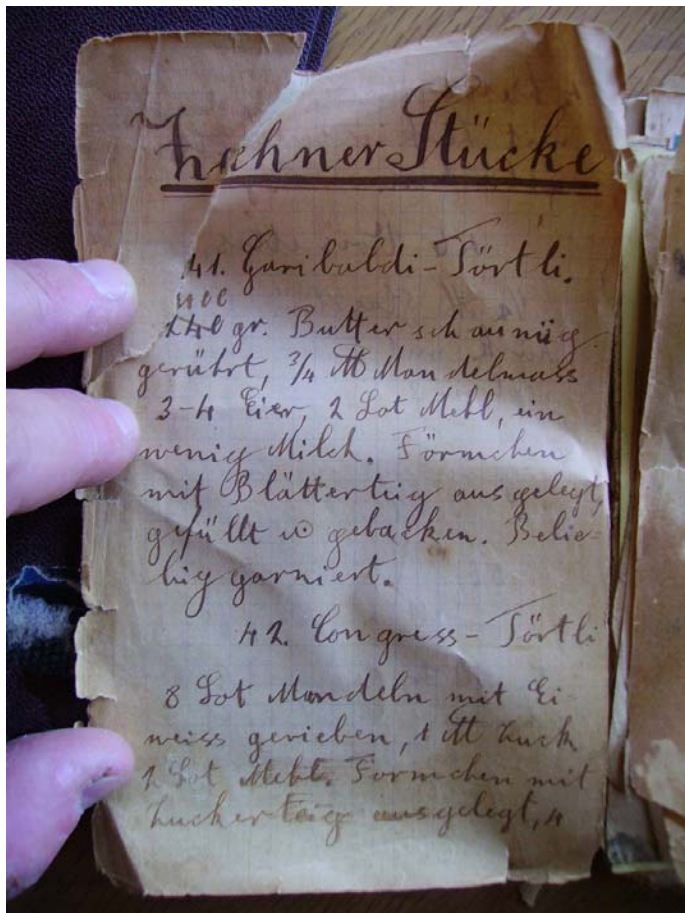 Zehner Stücke
41. Garibaldi-Törtli.
140 gr. Butter schaumig
gerührt, 3/4 ℔ Mandelmass
3-4 Eier, 2 Lot Mehl, ein
wenig Milch. Förmchen
mit Blätterteig ausgelegt,
gefüllt & gebacken. Belie-
big garniert.
42. Congress-Törtli
8 Lot Mandeln mit Ei-
weiss gerieben, 1 ℔ Zuck
2 Lot Mehl. Formchen mit
Zuckerteig ausgelegt,